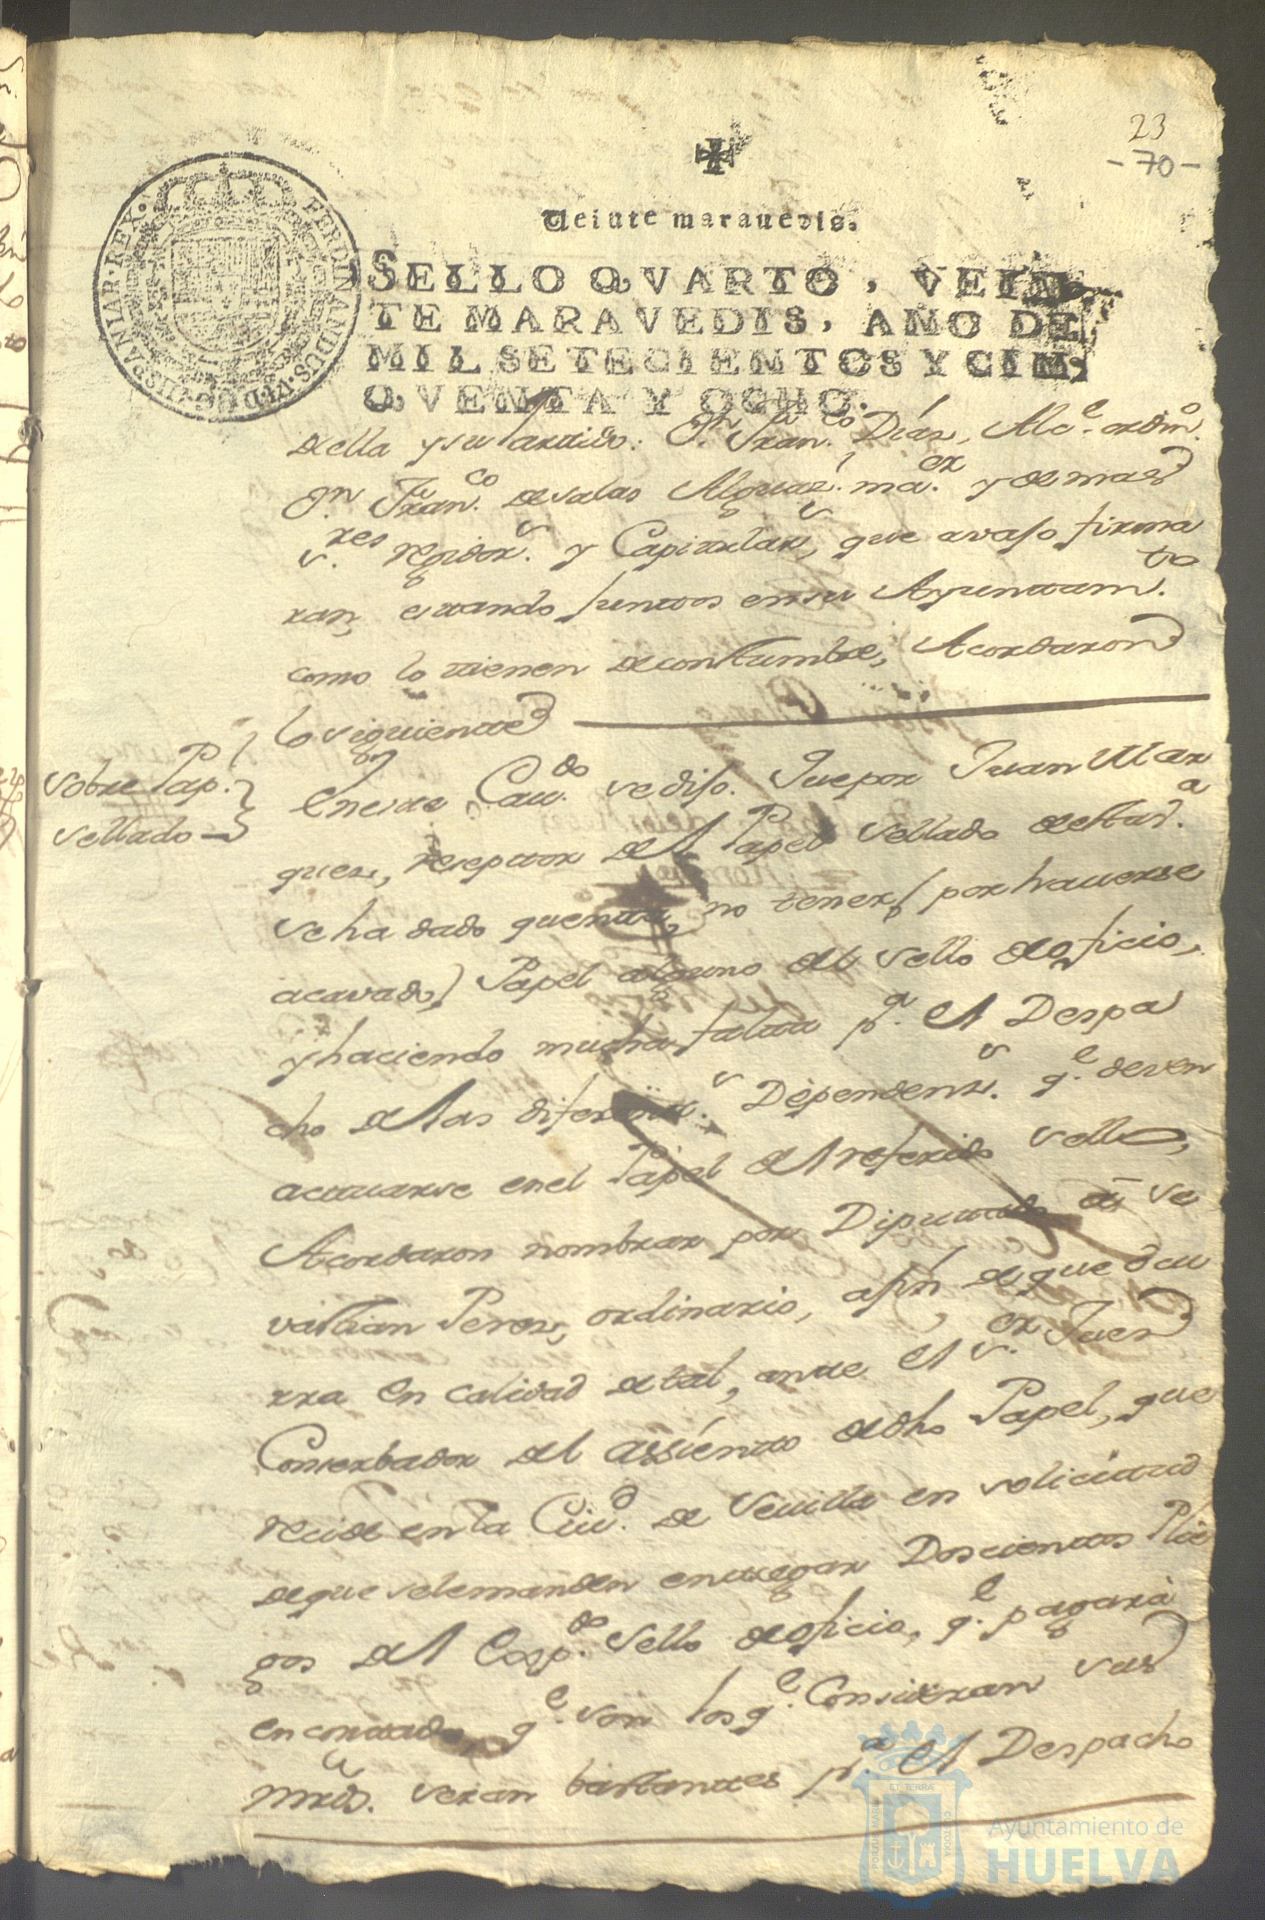 23
- 70 -
Veinte maravedis.
SELLO QVARTO, VEIN
TE MARAVEDIS, AÑO DE
MIL SETECIENTOS Y CIN
QVENTA Y OCHO.
FERDINANDUS·VI·D·G·HISPANIAR·REX·
della y su Partido. Dn. Franco. Díaz, Alce. ordino.
Dn. Franco. de salas Alguazl. maor. y demas
sres. regidors. y Capitulars, que avajo firma
ran, estando Juntos en su Ayuntamto.
como lo tienen de constumbre, Acordaron
lo siguiente
Sobre Pap.
Sellado
En este Cavdo. se dijo. Que por Juan Mar
quez, reseptor del Papel Sellado de esta sa.
se ha dado quenta, no tener (por haverse
acavado) Papel alguno del sello de oficio,
y haciendo mucha falta pa. el Despa
cho de las diferents. Dependens. qe. deven
actuarse en el Papel del referido sello,
Acordaron nombrar por Diputado a Se
vastian Perez, ordinario, afin de que ocu
rra en calidad de tal, ante el sor. Juez
Conserbador del assiento de dho Papel, que
recide en la Ciud. de Sevilla en solicitud
de que se le manden entregar Doscientos Plie
gos del Expdo. Sello de oficio, qe. pagarà
en contado, qe. son los qe. Consideran sus
mrds. seran bastantes pa. el Despacho
Ayuntamiento de
HUELVA